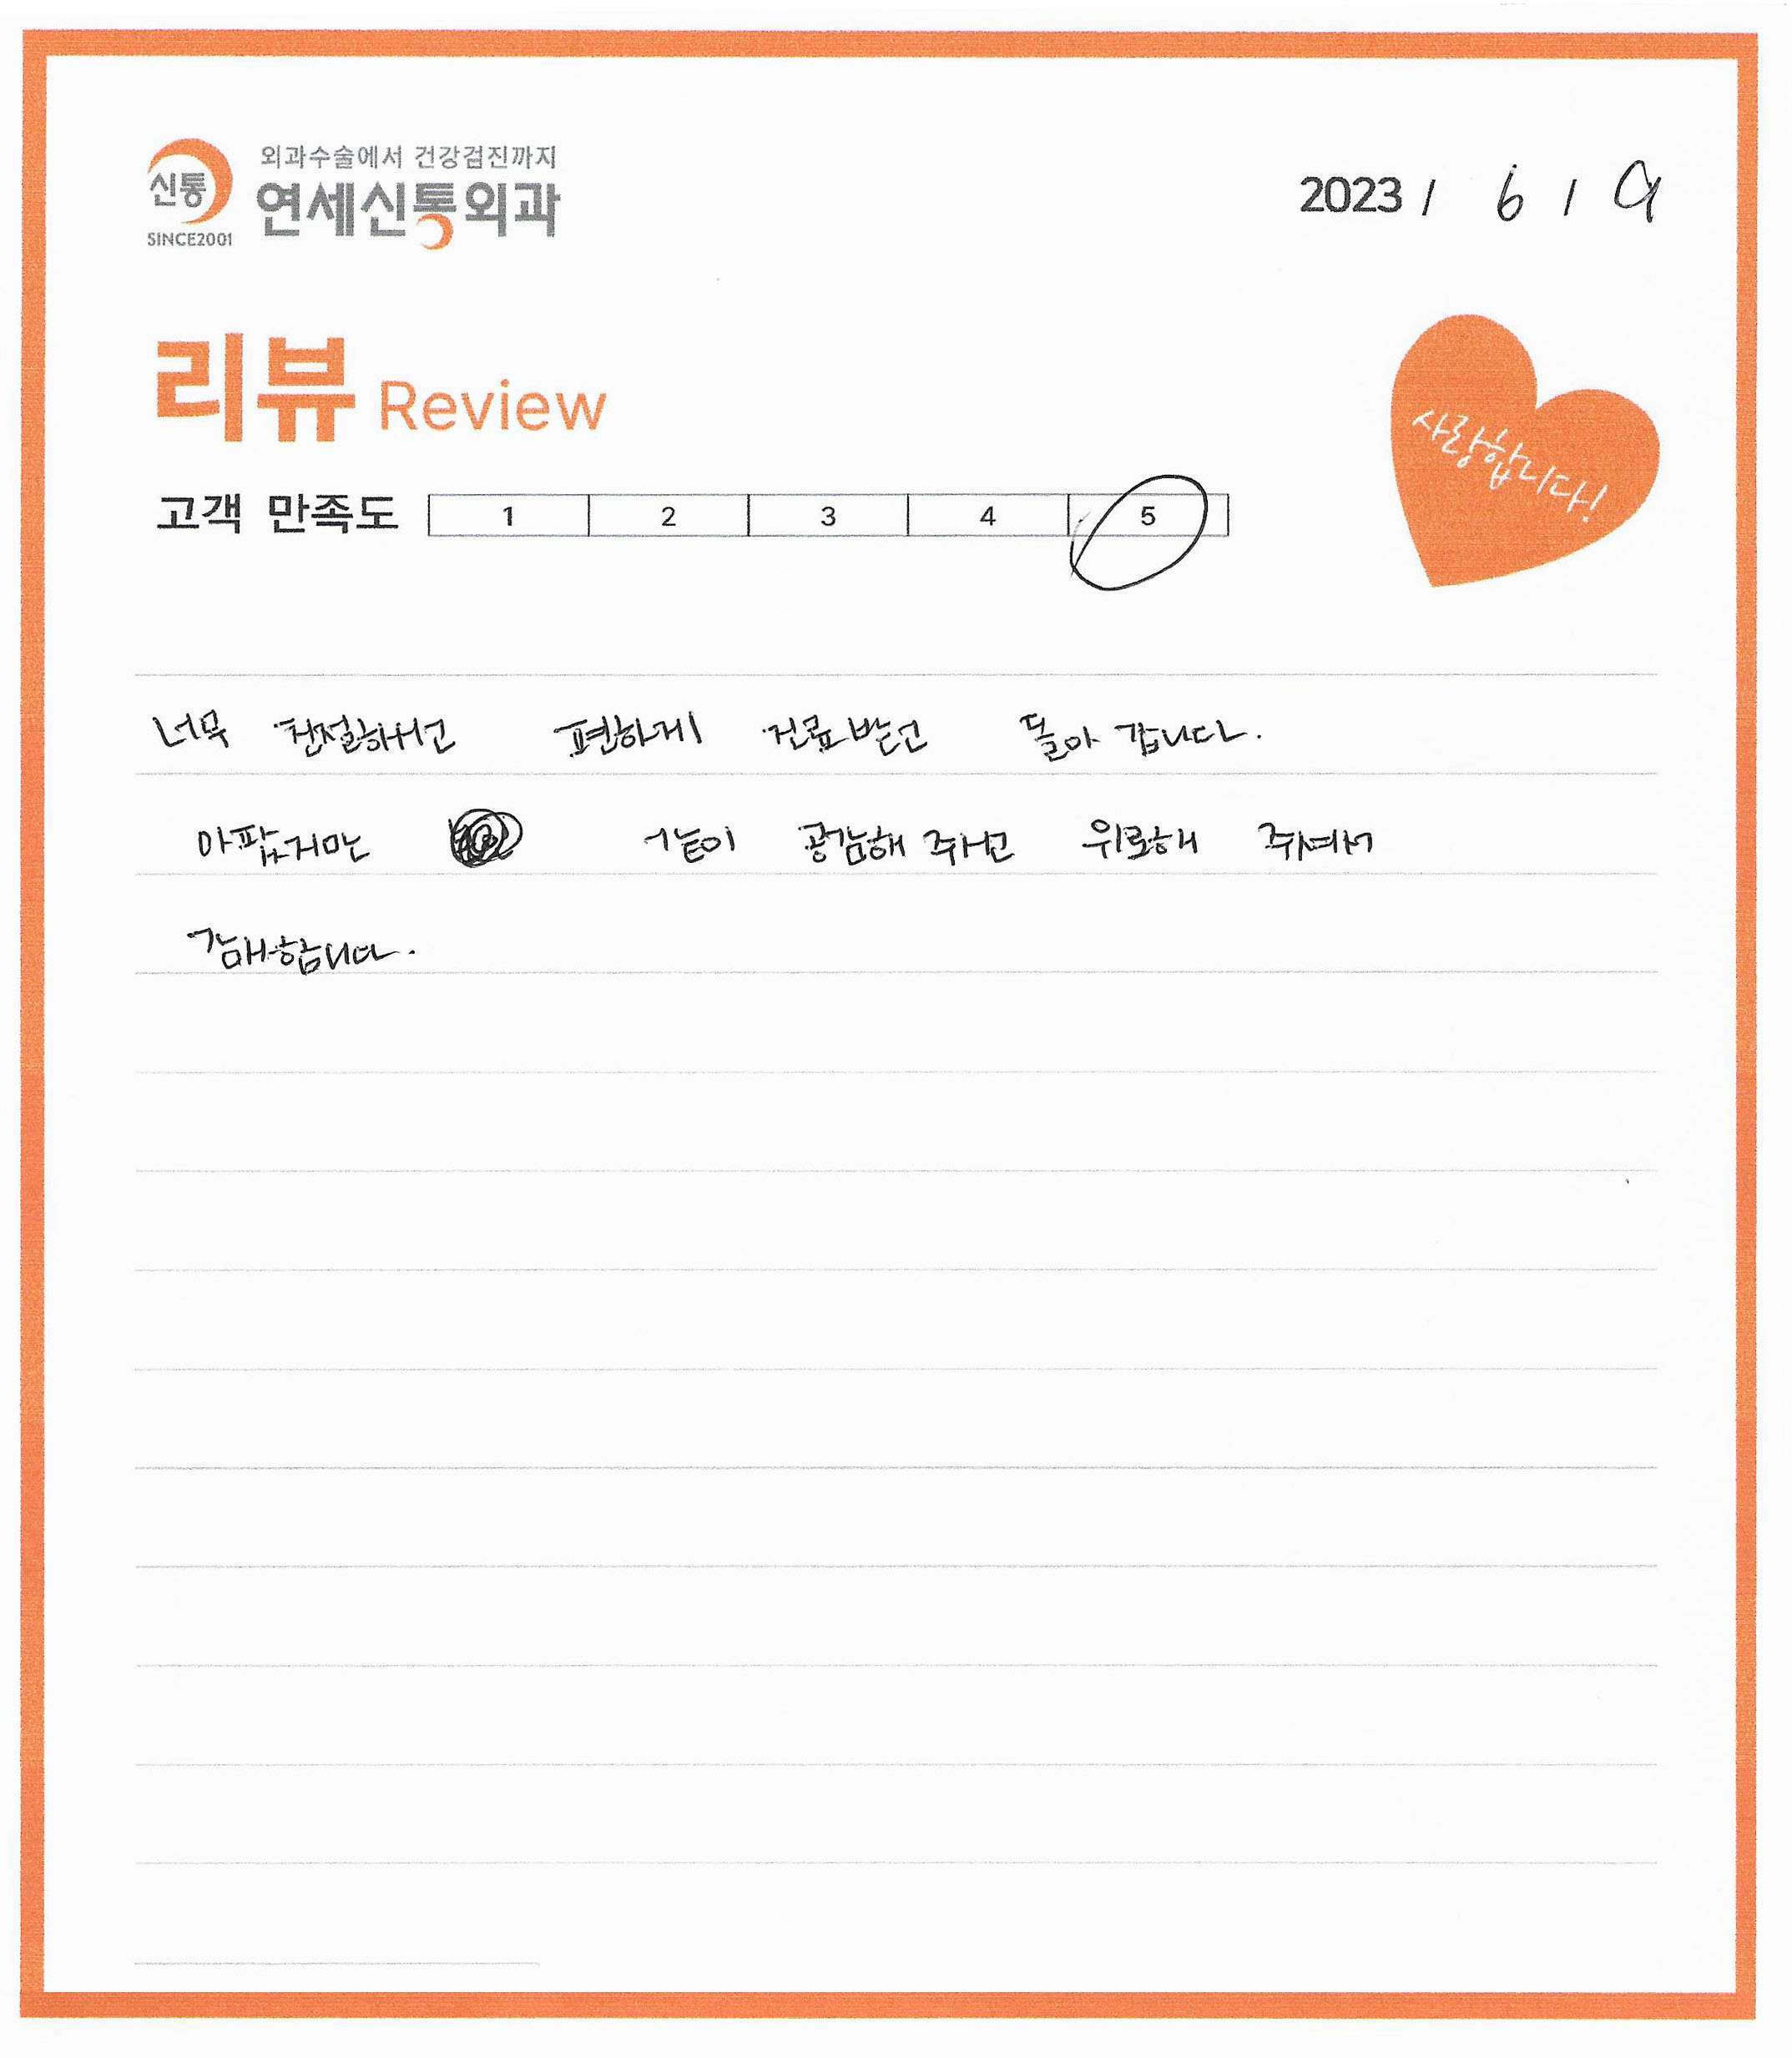 신통
SINCE2001
외과수술에서 건강검진까지
연세신통외과
2023 / 6 / 9
리뷰 Review
사랑합니다!
고객 만족도 1 2 3 4 5
너무 친절하시고 편하게 진료받고 돌아 갑니다.
아팠지만 같이 공감해 주시고 위로해 주셔서
감사합니다.